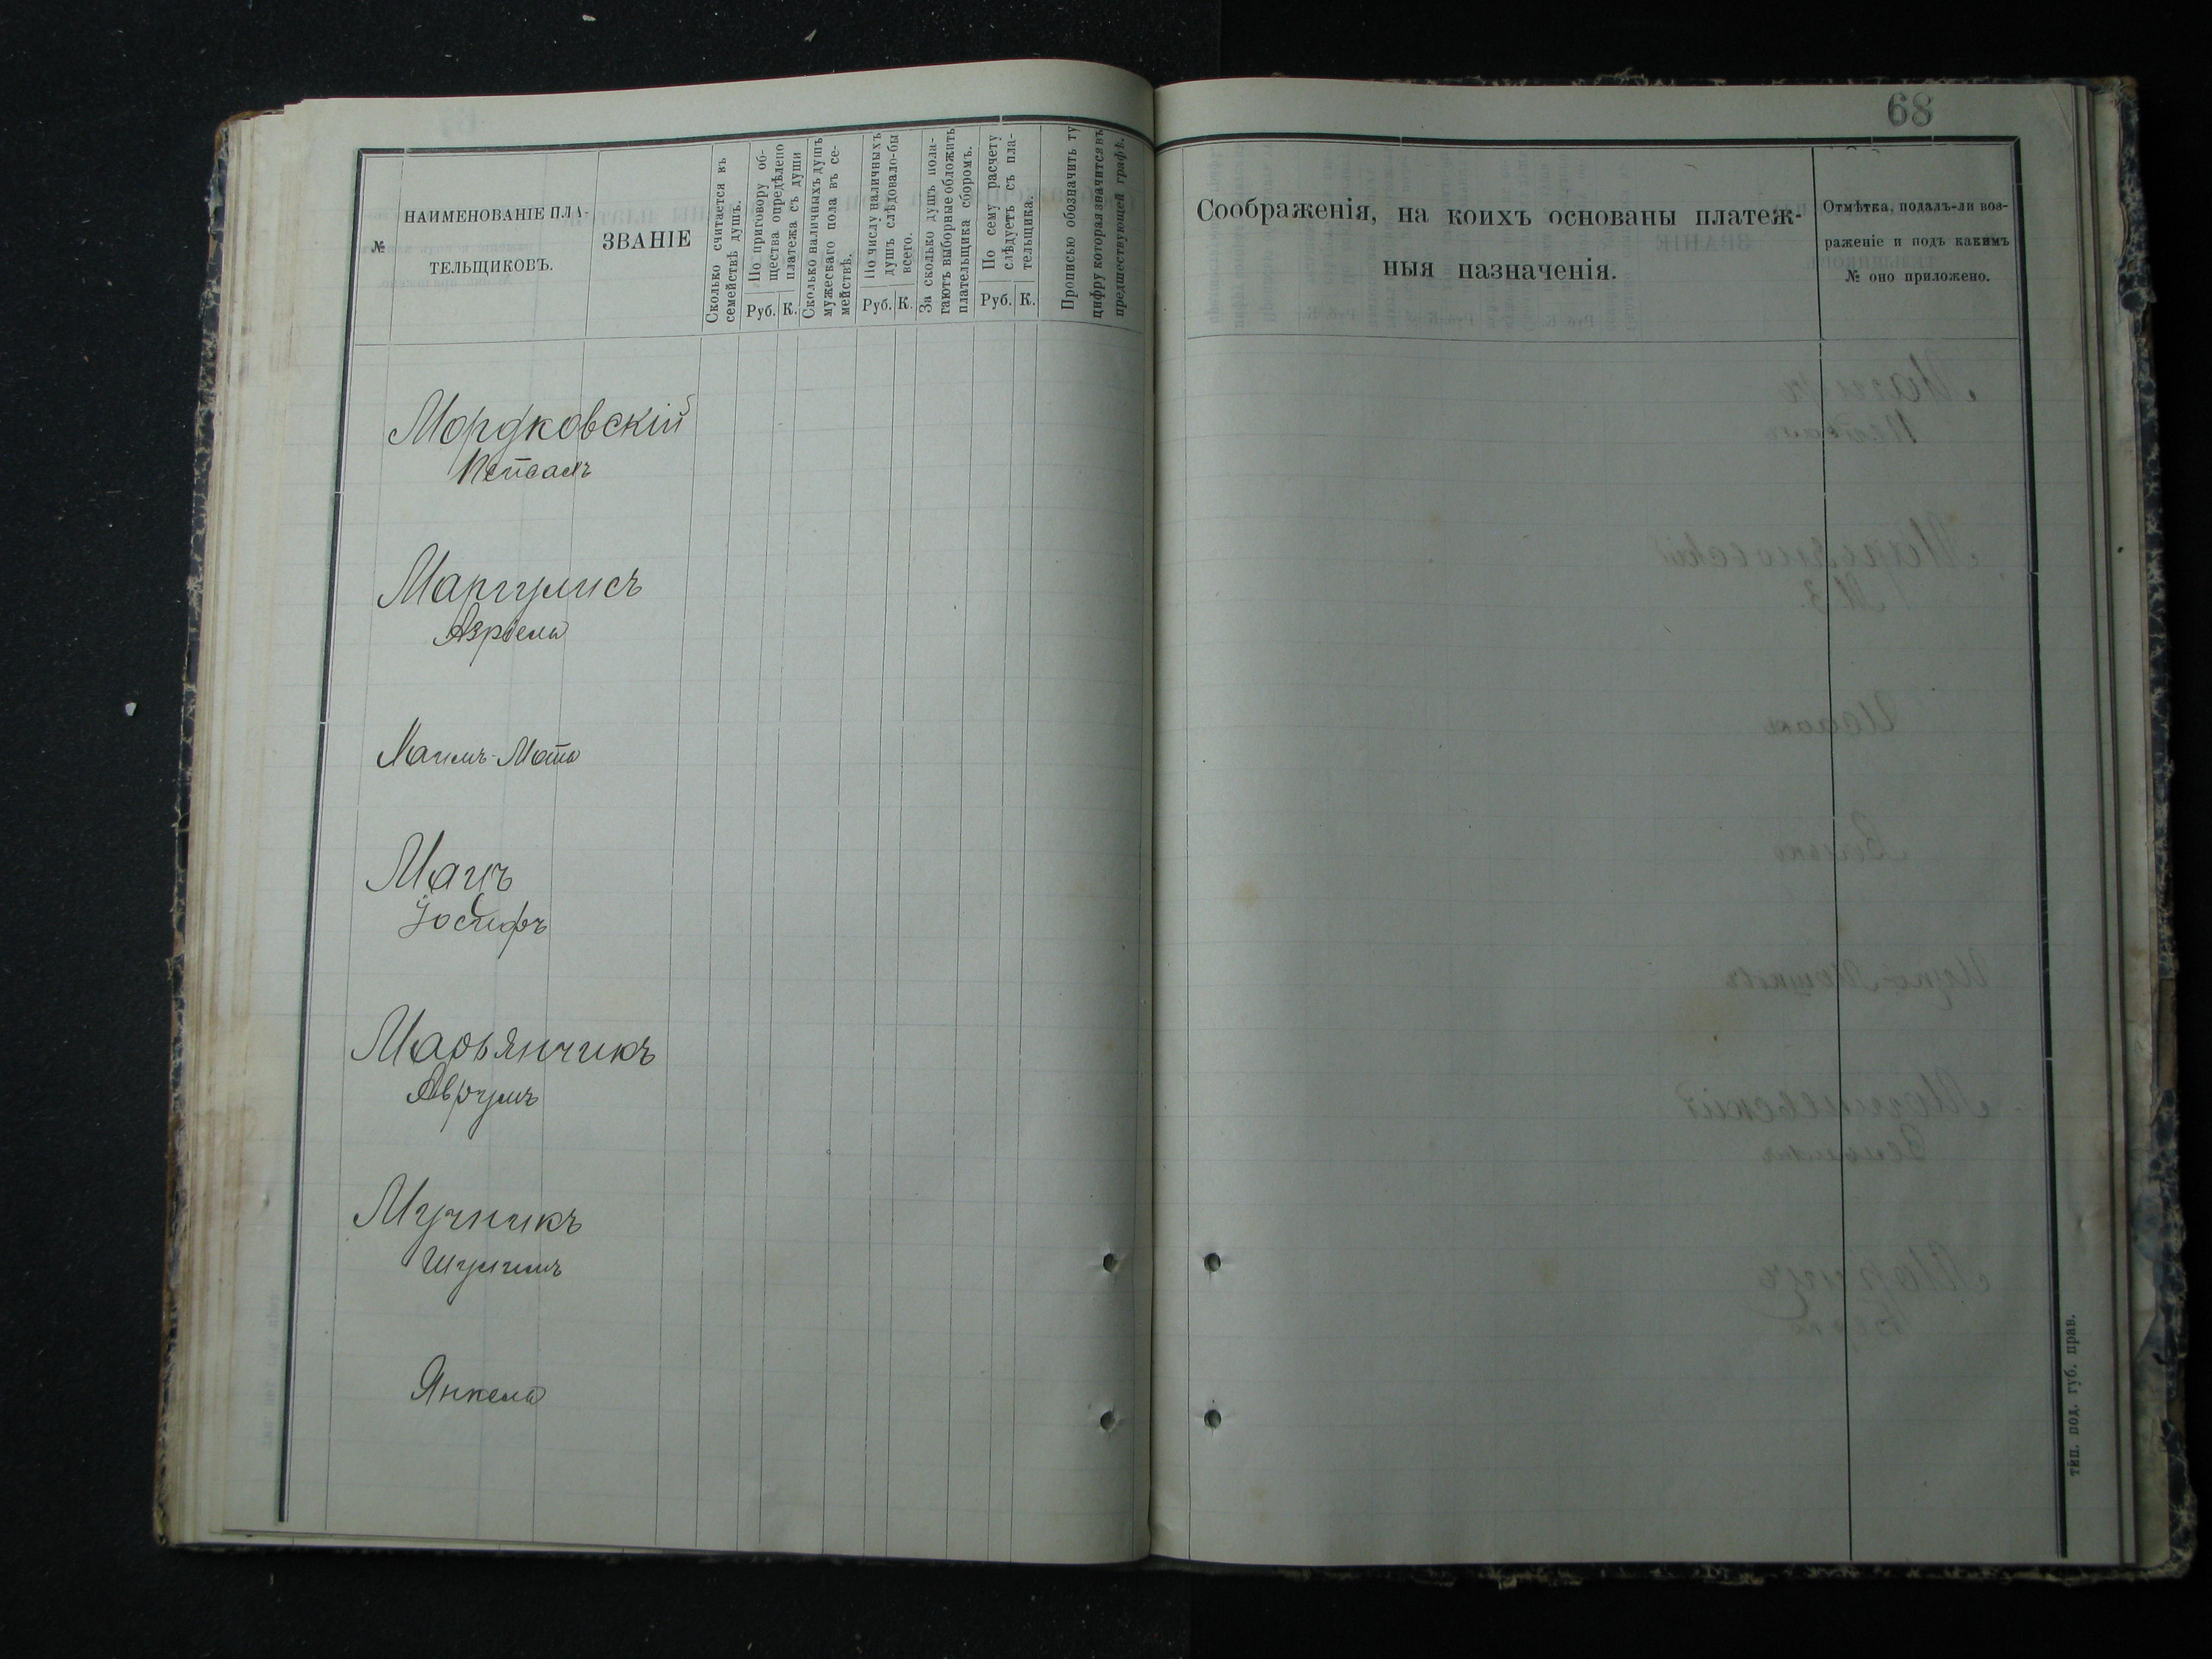 68
№
НАИМЕНОВАНІЕ ПЛА-
ТЕЛЬЩИКОВЪ.
ЗВАНІЕ
Сколько считается въ
семействѣ душъ.
По приговору об-
щества опредѣлено
платежа съ души
Руб. К.
Сколько наличныхъ душъ
мужескаго пола въ се-
мействѣ.
По числу наличныхъ
душъ слѣдовало-бы
всего.
Руб. К.
За сколько душъ пола-
гаютъ выборные обложить
плательщика сборомъ.
По сему расчету
слѣдуетъ съ пла-
тельщика.
Руб. К.
Прописью обозначить ту
цифру которая значится въ
предшествующей графѣ.
Соображенія, на коихъ основаны платеж-
ныя назначенія.
Отмѣтка, подалъ-ли воз-
раженіе и подъ какимъ
№ оно приложено.
Мордковскій
Маргулисъ
Азріела
Мацъ
Іосифъ
Марьянчикъ
Аврумъ
Мучникъ
Шулимъ
Янкела
тип. под. губ. прав.